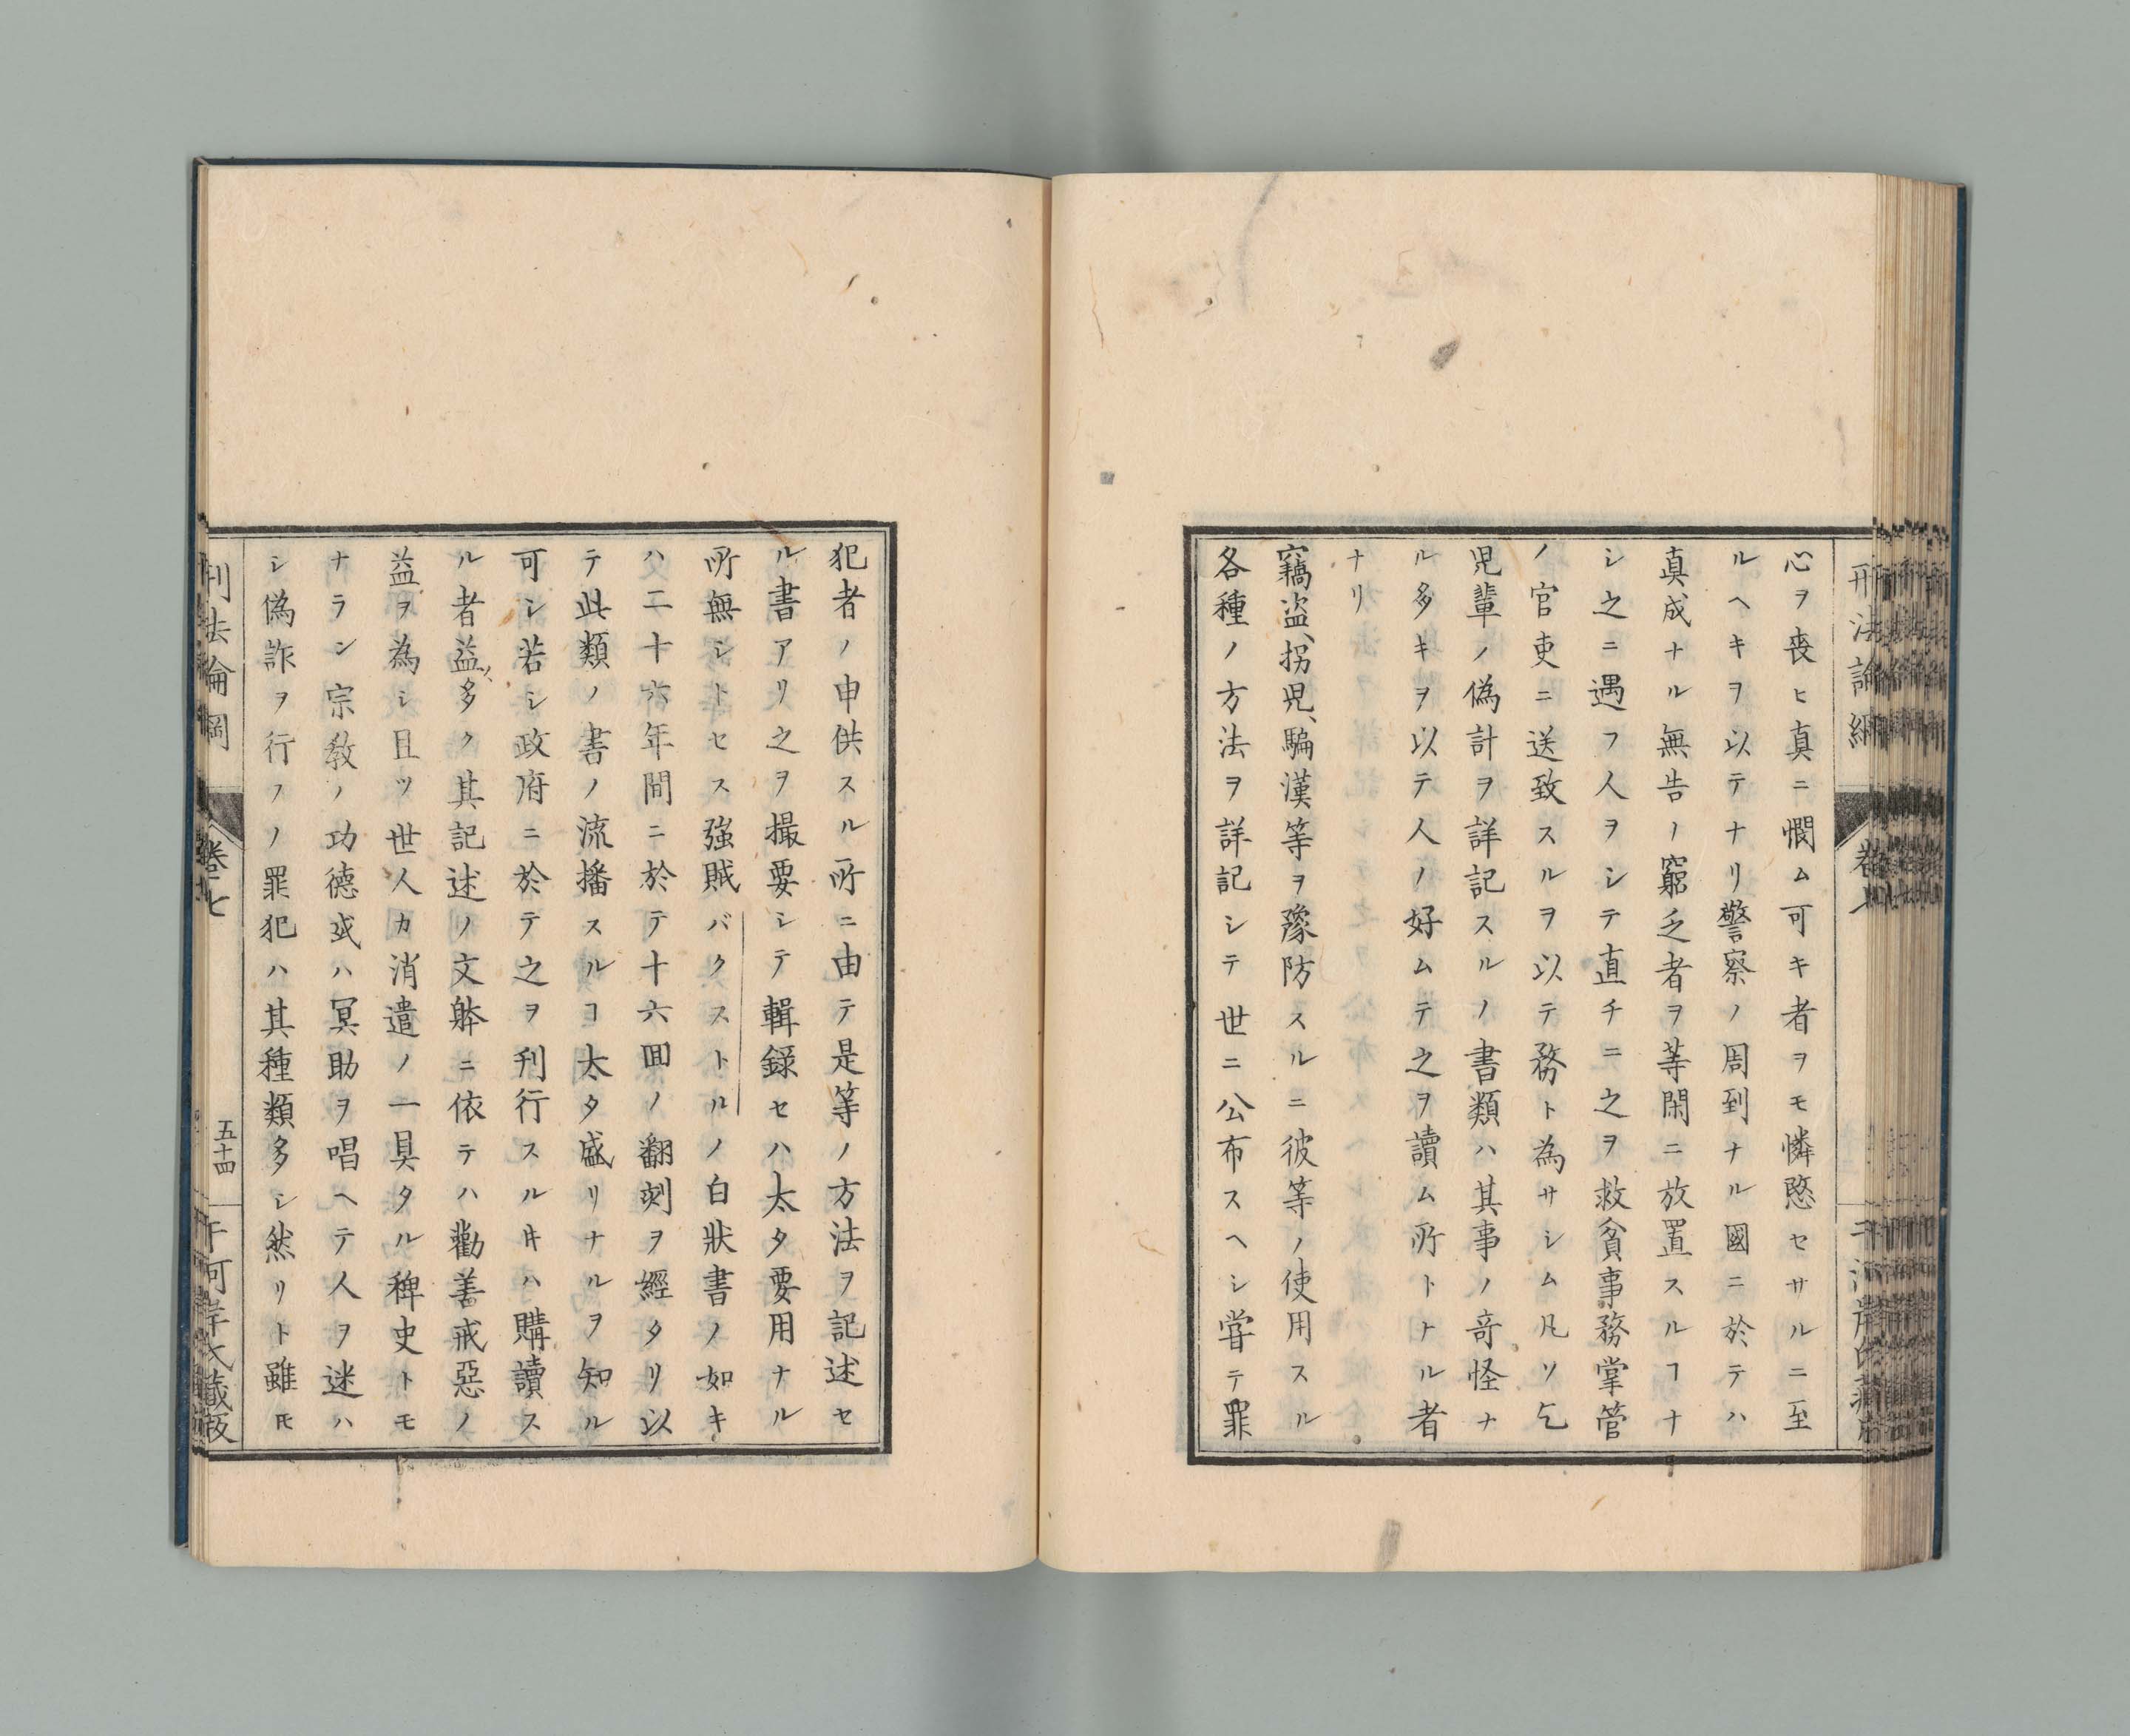 心ヲ喪ヒ真ニ憫ム可キ者ヲモ憐愍セサルニ至
ルヘキヲ以テナリ警察ノ周到ナル國ニ於テハ
真成ナル無告ノ窮乏者ヲ等閑ニ放置スルヿナ
シ之ニ遇フ人ヲシテ直チニ之ヲ救貧事務掌管
ノ官吏ニ送致スルヲ以テ務ト為サシム凡ソ乞
児輩ノ偽計ヲ詳記スルノ書類ハ其事ノ奇怪ナ
ル多キヲ以テ人ノ好ムテ之ヲ讀ム所トナル者
ナリ
竊盗、拐児、騙漢等ヲ豫防スルニ彼等ノ使用スル
各種ノ方法ヲ詳記シテ世ニ公布スヘシ嘗テ罪
犯者ノ申供スル所ニ由テ是等ノ方法ヲ記述セ
ル書アリ之ヲ撮要シテ輯録セハ太タ要用ナル
所無シトセス強賊バクストルノ白狀書ノ如キ
ハ二十六年間ニ於テ十六囬ノ翻刻ヲ經タリ以
テ此類ノ書ノ流播スルヿ太タ盛リナルヲ知ル
可シ若シ政府ニ於テ之ヲ刋行スルキハ購讀ス
ル者益〻多ク其記述ノ文躰ニ依テハ勸善戒惡ノ
益ヲ為シ且ツ世人カ消遣ノ一具タル稗史トモ
ナラン宗教ノ功德或ハ冥助ヲ唱ヘテ人ヲ迷ハ
シ偽詐ヲ行フノ罪犯ハ其種類多シ然リト雖𪜈
刑法論綱
卷七
五十四